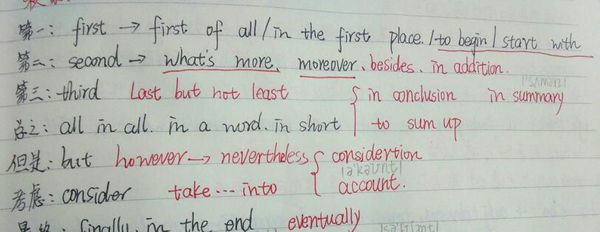 第一: first → first of all / in the first place. / to begin / start with
第二: second → what's more, moreover、besides、in addition.
第三: third Last but not least in conclusion in summary
总之: all in all. in a word. in short to sum up
但是: but however → nevertheless considertion
考虑: consider take … into account.
最终: finally. in the end eventually